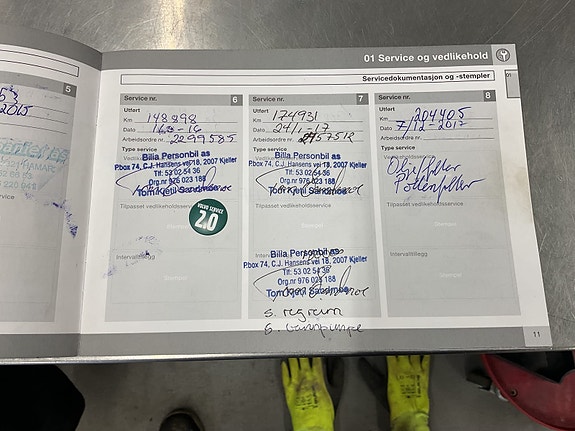 01 Service og vedlikehold
01
Servicedokumentasjon og -stempler
5
2015
Service nr. 6
Utført
Km 148898
Dato 16.3-16
Arbeidsordre nr. 2299585
Type service
Billia Personbil as
P.box 74, C.J. Hansens vei 18, 2007 Kjeller
Tlf: 53 02 54 36
Org.nr 976 023 188
Tom Kjetil Sandmoe
Tilpasset vedlikeholdsservice
2.0
Intervalltillegg
Stempel
Service nr. 7
Utført
Km 174931
Dato 24/1-17
Arbeidsordre nr. 2457512
Type service
Billia Personbil as
P.box 74, C.J. Hansens vei 18, 2007 Kjeller
Tlf: 53 02 54 36
Org.nr 976 023 188
Tom Kjetil Sandmoe
Tilpasset vedlikeholdsservice
Stempel
Billia Personbil as
P.box 74, C.J. Hansens vei 18, 2007 Kjeller
Tlf: 53 02 54 36
Org.nr 976 023 188
Tom Kjetil Sandmoe
S. regreim
S. vannpumpe
Service nr. 8
Utført
Km 204405
Dato 7/12-2017
Arbeidsordre nr.
Type service
Oljefilter
Pollenfilter
Tilpasset vedlikeholdsservice
Stempel
Intervalltillegg
Stempel
11